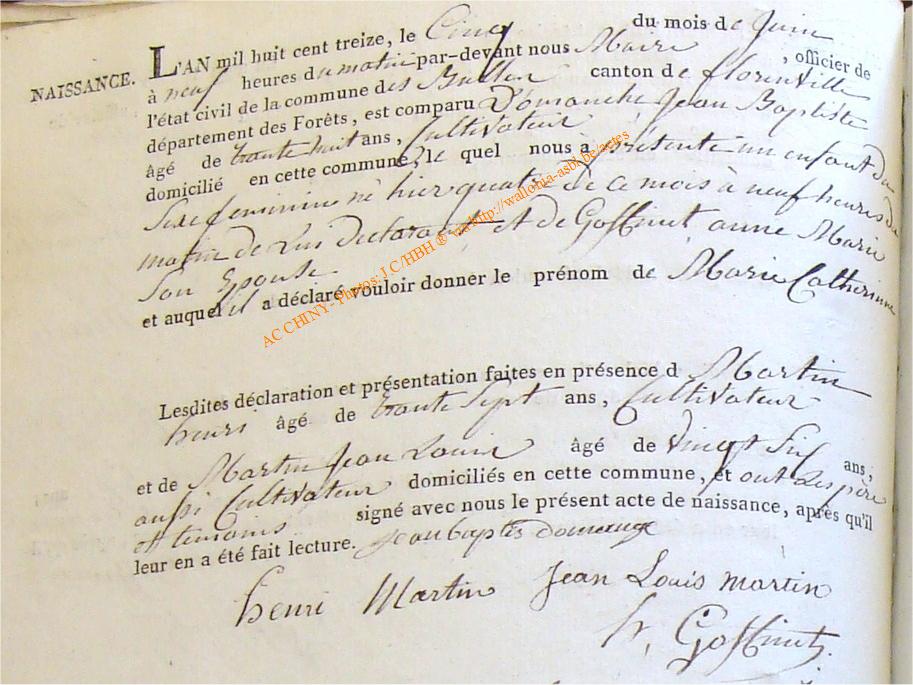 NAISSANCE.
L'AN mil huit cent treize, le Cinq du mois de Juin
à neuf heures du matin par-devant nous Maire , officier de
l'état civil de la commune des Bulles canton de florenville
département des Forêts, est comparu Domanche Jean Baptiste
âgé de trente huit ans, Cultivateur
domicilié en cette commune, le quel nous à présenté un enfant du
Sexe feminin né hier quatre de ce mois à neuf heures du
matin de lui declarant et de Goffinet anne Marie
Son Epouse
et auquel il a déclaré vouloir donner le prénom de Marie Catherinne
AC CHINY - Photos: J C/HBH ® via http://wallonia-asbl.be/actes
Lesdites déclaration et présentation faites en présence d Martin
henri âgé de trente Sept ans, Cultivateur
et de Martin Jean Louis âgé de vingt Six ans,
aussi Cultivateur domiciliés en cette commune, et ont Les père
et temoins signé avec nous le présent acte de naissance, après qu'il
leur en a été fait lecture. Jean baptis domange
henri Martin Jean Louis martin
Goffinet